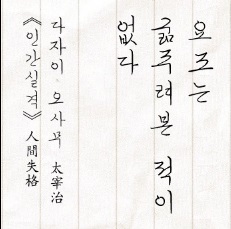 요조는
굶주려본 적이
없다
다자이 오사무 太宰治
《인간실격》人間失格